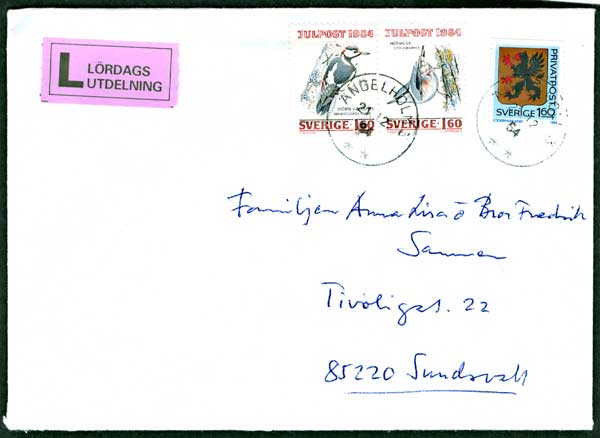 L LÖRDAGS
UTDELNING
JULPOST 1984 JULPOST 1984
SVERIGE 1.60 SVERIGE 1.60
PRIVATPOST
SVERIGE 1.60
ÄNGELHOLM
21 12
84
Familjen Anna Lisa o Bror Fredrik
Sammen
Tivoligat. 22
85220 Sundsvall